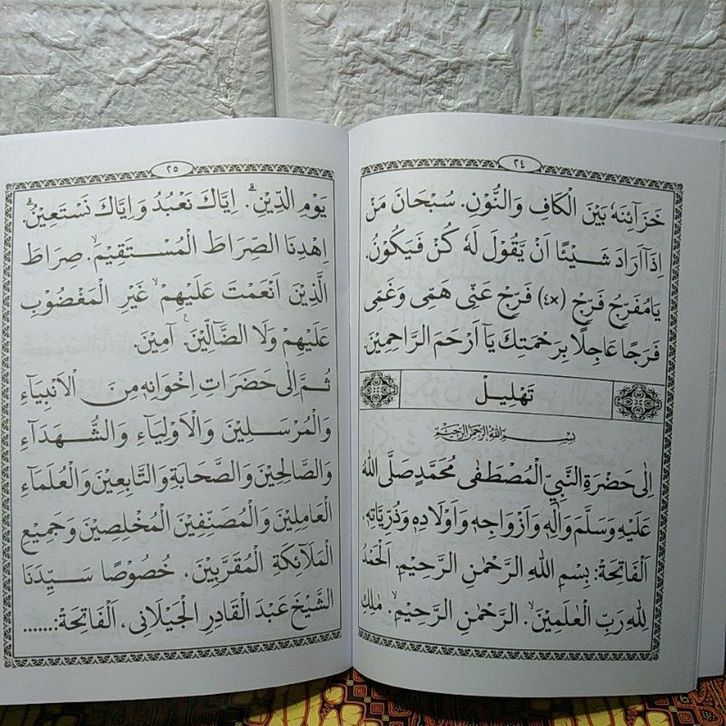 ٢٤
خَزَآئِنَهُ بَيْنَ الْكَافِ وَالنُّوْنِ. سُبْحَانَ مَنْ
اِذَآاَرَادَ شَيْئًا اَنْ يَّقُوْلَ لَهُ كُنْ فَيَكُوْنُ.
يَامُفَرِّجُ فَرِّجْ (×٤) فَرِّجْ عَنِّى هَمِّى وَغَمِّى
فَرَجًا عَاجِلًا بِرَحْمَتِكَ يَآ اَرْحَمَ الرَّاحِمِيْنَ
تَهْلِيْلْ
بِسْمِ اللهِ الرَّحْمٰنِ الرَّحِيْمِ
اِلٰى حَضْرَةِ النَّبِيِّ الْمُصْطَفٰى مُحَمَّدٍ صَلَّى اللهُ
عَلَيْهِ وَسَلَّمَ وَاٰلِهِ وَاَزْوَاجِهِ وَاَوْلَادِهِ وَذُرِّيَّاتِهِ.
اَلْفَاتِحَةُ: بِسْمِ اللهِ الرَّحْمٰنِ الرَّحِيْمِ. اَلْحَمْدُ
لِلّٰهِ رَبِّ الْعٰلَمِيْنَۙ. الرَّحْمٰنِ الرَّحِيْمِۙ. مٰلِكِ
٢٥
يَوْمِ الدِّيْنِۗ. اِيَّاكَ نَعْبُدُ وَاِيَّاكَ نَسْتَعِيْنُۗ.
اِهْدِنَا الصِّرَاطَ الْمُسْتَقِيْمَۙ. صِرَاطَ
الَّذِيْنَ اَنْعَمْتَ عَلَيْهِمْ ۙ غَيْرِ الْمَغْضُوْبِ
عَلَيْهِمْ وَلَا الضَّآلِّيْنَ ࣖ. آمِيْنَ.
ثُمَّ اِلٰى حَضَرَاتِ اِخْوَانِهِ مِنَ الْاَنْبِيَآءِ
وَالْمُرْسَلِيْنَ وَالْاَوْلِيَآءِ وَالشُّهَدَآءِ
وَالصَّالِحِيْنَ وَالصَّحَابَةِ وَالتَّابِعِيْنَ وَالْعُلَمَآءِ
الْعَامِلِيْنَ وَالْمُصَنِّفِيْنَ الْمُخْلِصِيْنَ وَجَمِيْعِ
الْمَلَآئِكَةِ الْمُقَرَّبِيْنَ، خُصُوْصًا سَيِّدِنَا
الشَّيْخِ عَبْدِ الْقَادِرِ الْجَيْلَانِى، اَلْفَاتِحَةُ:......